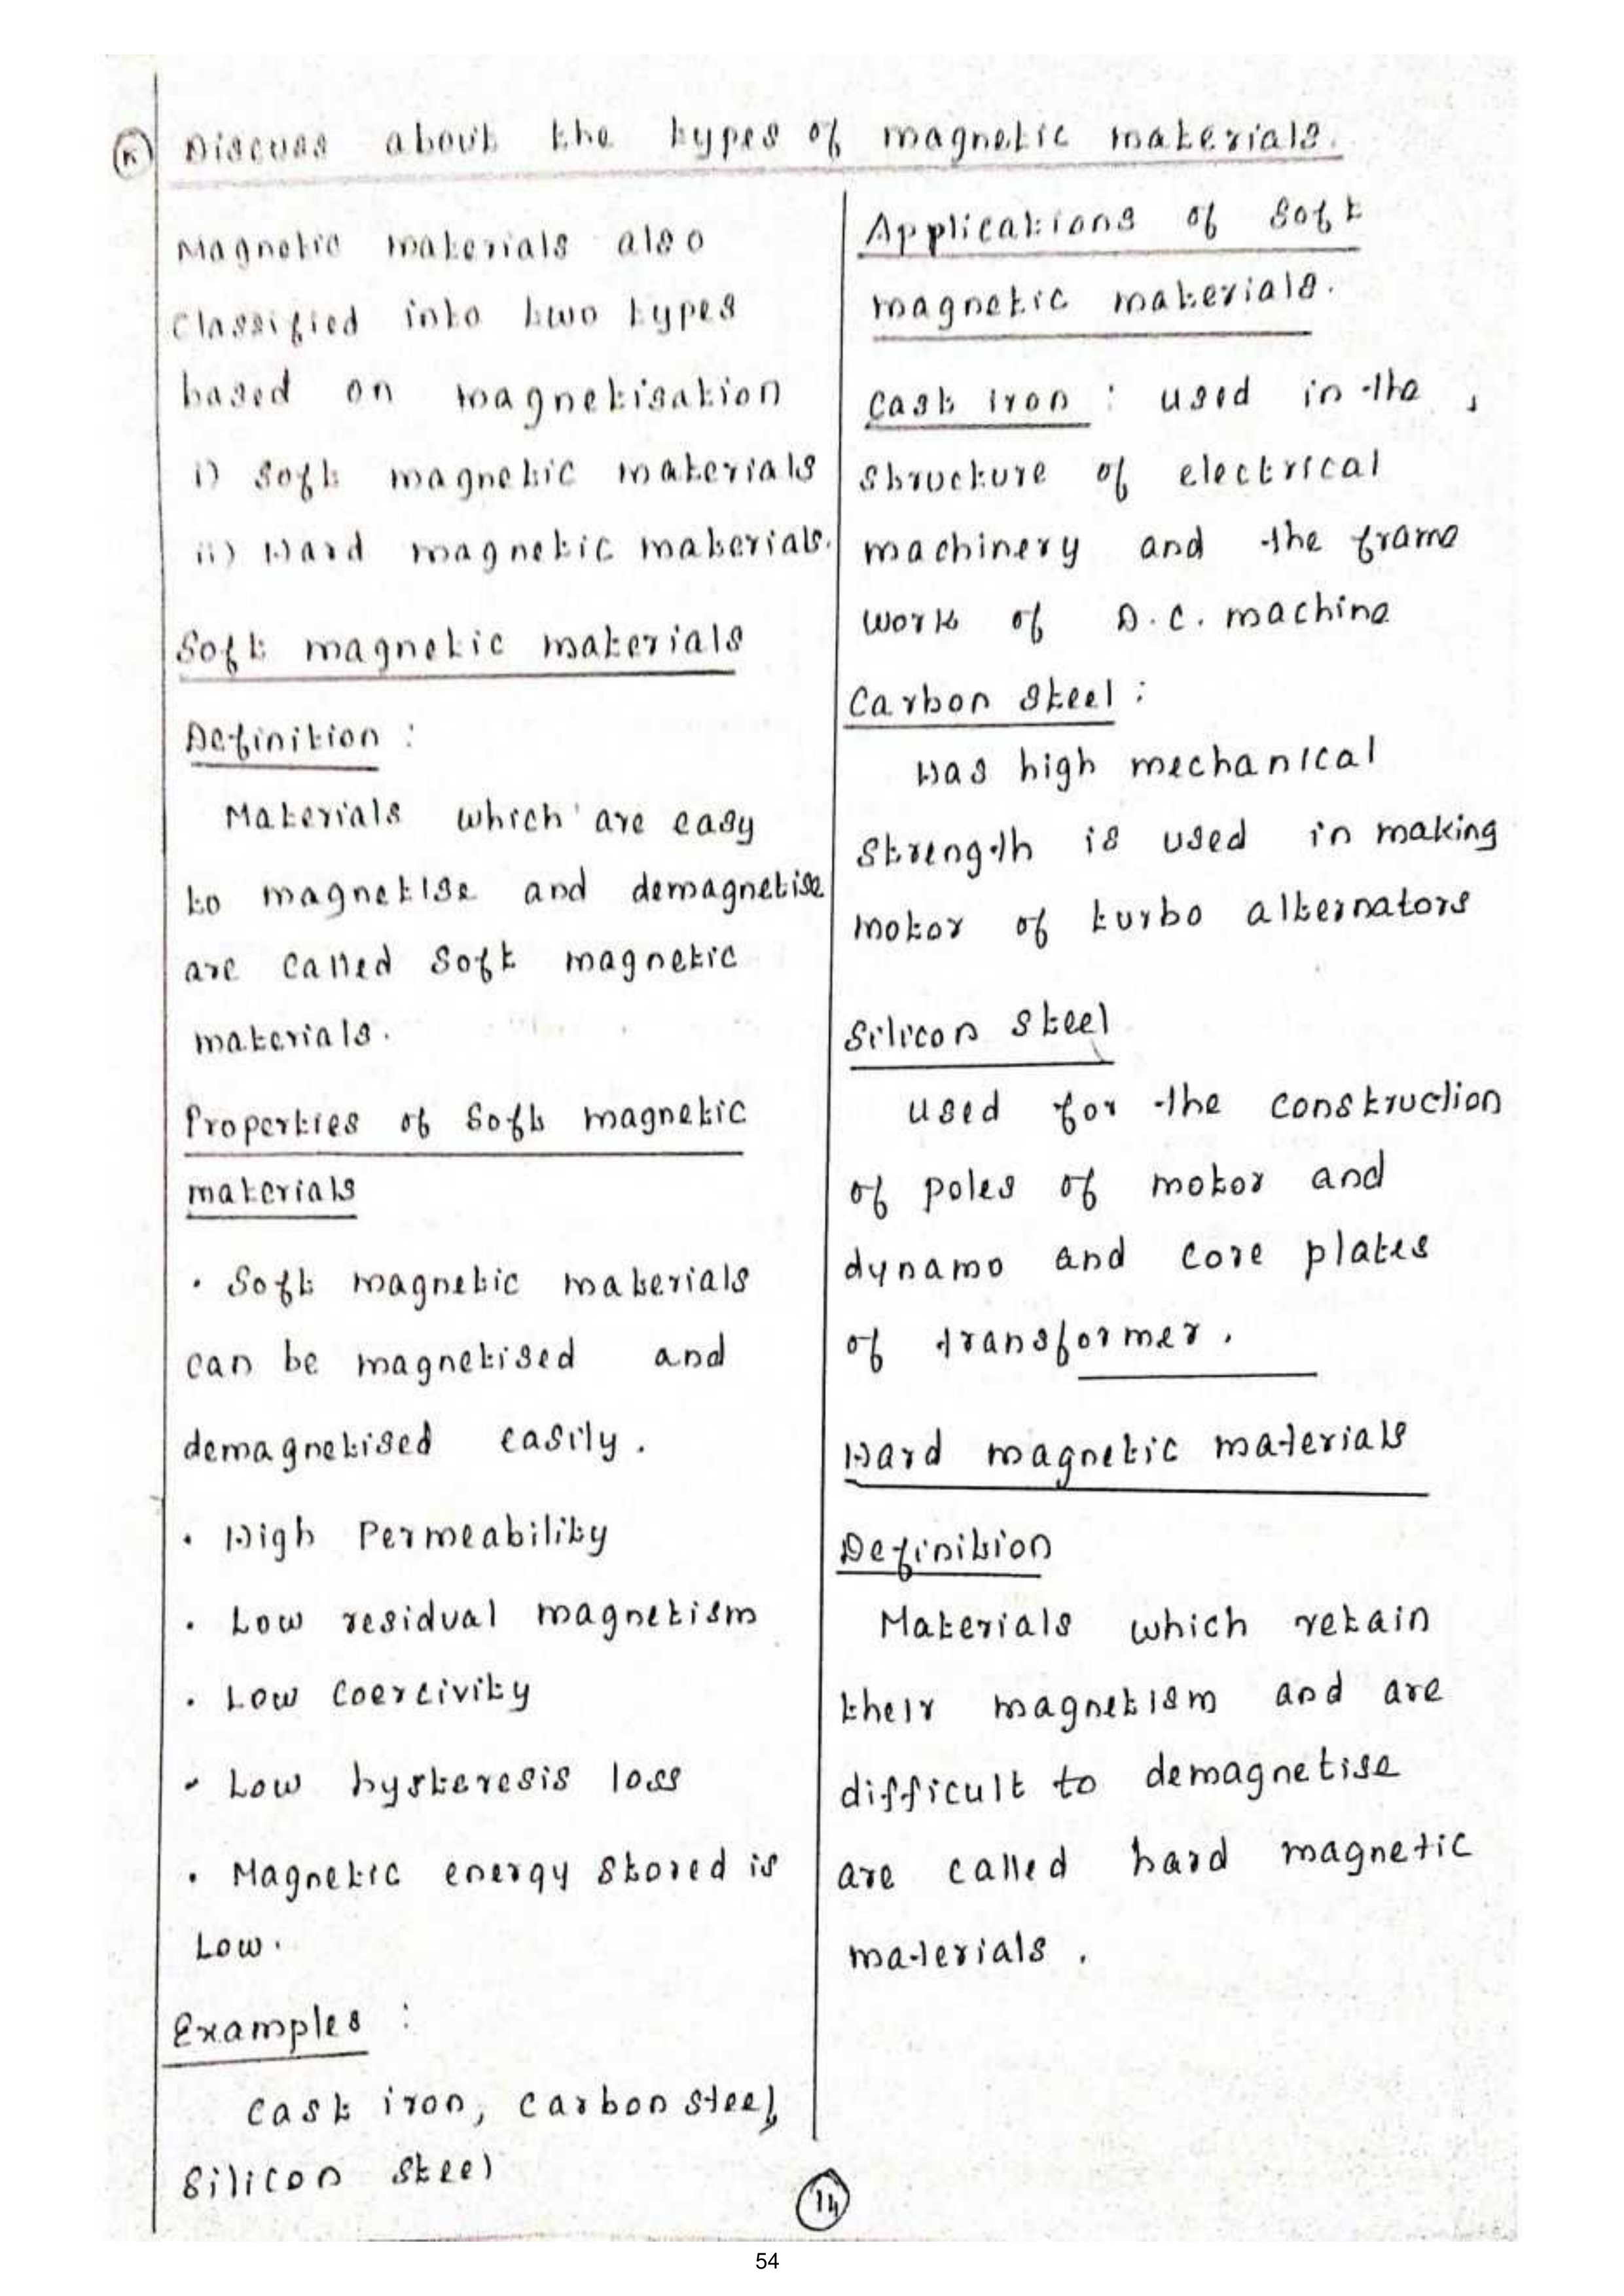 K Discuss about the types of magnetic materials.
Magnetic materials also
Classified into two types
based on magnetisation
i) Soft magnetic materials
ii) Hard magnetic materials.
Soft magnetic materials
Definition :
Materials which are easy
to magnetise and demagnetise
are called Soft magnetic
materials.
Properties of Soft magnetic
materials
• Soft magnetic materials
can be magnetised and
demagnetised easily.
• High Permeability
• Low residual magnetism
• Low Coercivity
• Low hysteresis loss
• Magnetic energy stored is
Low.
Examples :
Cast iron, carbon steel,
Silicon steel
Applications of Soft
magnetic materials.
Cast iron : used in the ,
structure of electrical
machinery and the frame
work of D.C. machine
Carbon steel :
Has high mechanical
strength is used in making
motor of turbo alternators
Silicon steel
used for the construction
of poles of motor and
dynamo and core plates
of transformer.
Hard magnetic materials
Definition
Materials which retain
their magnetism and are
difficult to demagnetise
are called hard magnetic
materials.
14
54